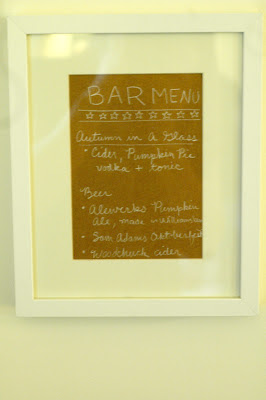 BAR MENU
Autumn in A Glass
• Cider, Pumpkin Pie
vodka + tonic
Beer
• Alewerks Pumpkin
Ale, made in Williamsburg
• Sam Adams Oktoberfest
• Woodchuck cider